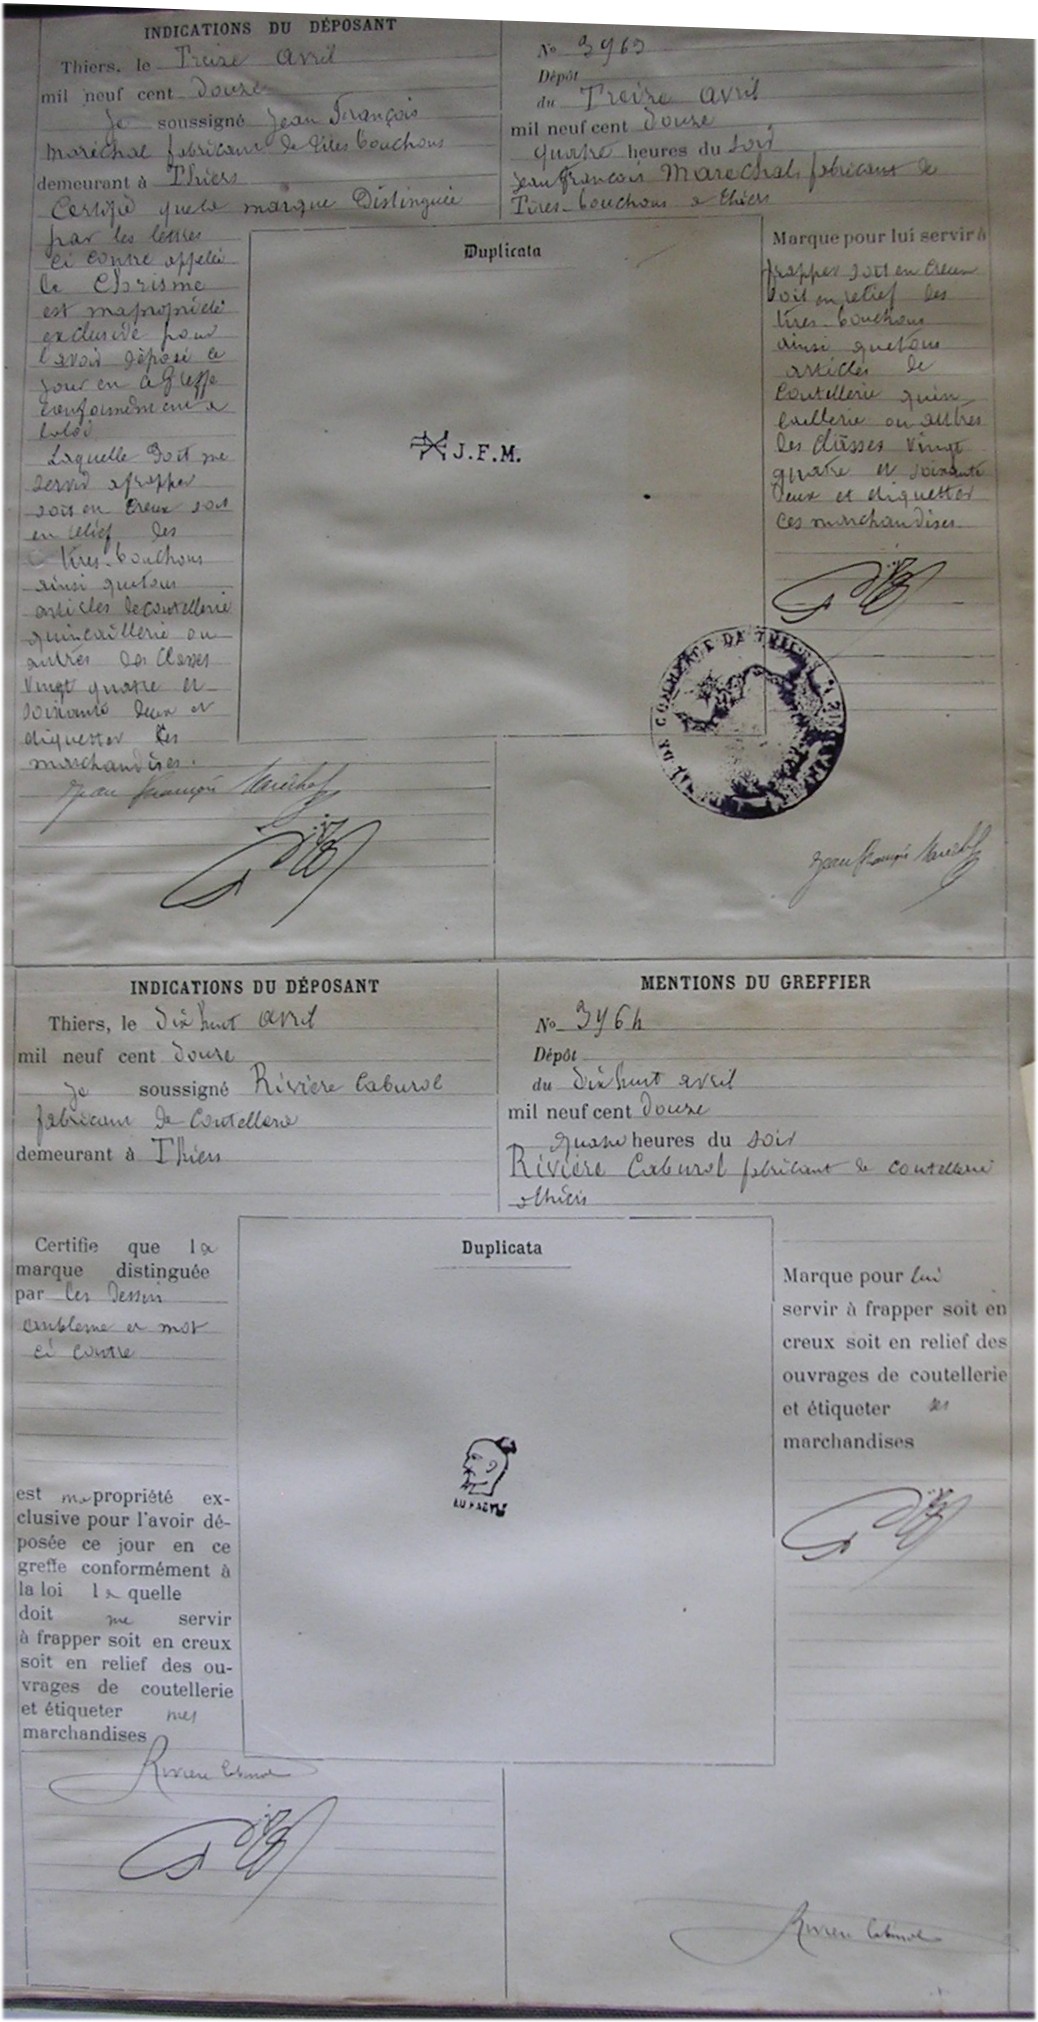 INDICATIONS DU DÉPOSANT
Thiers, le Treize avril
mil neuf cent douze
Je soussigné Jean François
Maréchal fabricant de tires bouchons
demeurant à Thiers
Certifie que la marque Distinguée
par les lettres
ci contre appelée
le Chrisme
est ma propriété
exclusive pour
l'avoir déposé ce
jour en ce Greffe
conformément a
la loi
Laquelle doit me
servir a frapper
soit en creux soit
en relief des
tires-bouchons
ainsi que tous
articles de coutellerie
quincaillerie ou
autres des classes
vingt quatre et
soixante deux et
étiquetter les
marchandises.
Jean François Maréchal
No 3963
Dépôt
du Treize avril
mil neuf cent douze
quatre heures du soir
Jean François Maréchal, fabricant de
Tires-bouchons a thiers
Duplicata
J.F.M.
Marque pour lui servir à
frapper soit en creux
soit en relief des
tires-bouchons
ainsi que tous
articles de
coutellerie quin
caillerie ou autres
des classes vingt
quatre et soixante
deux et etiquetter
ces marchandises
DE COMMERCE DE THIERS
Jean François Maréchal
INDICATIONS DU DÉPOSANT
Thiers, le dix huit avril
mil neuf cent douze
Je soussigné Rivière Caburol
fabricant de coutellerie
demeurant à Thiers
MENTIONS DU GREFFIER
No 3964
Dépôt
du dix huit avril
mil neuf cent douze
quatre heures du soir
Rivière Caburol fabricant de coutellerie
a thiers
Certifie que la
marque distinguée
par les dessin
embleme et mot
ci contre
est ma propriété ex-
clusive pour l'avoir dé-
posée ce jour en ce
greffe conformément à
la loi la quelle
doit me servir
à frapper soit en creux
soit en relief des ou-
vrages de coutellerie
et étiqueter mes
marchandises
Rivière Caburol
Duplicata
Marque pour lui
servir à frapper soit en
creux soit en relief des
ouvrages de coutellerie
et étiqueter ses
marchandises
Rivière Caburol